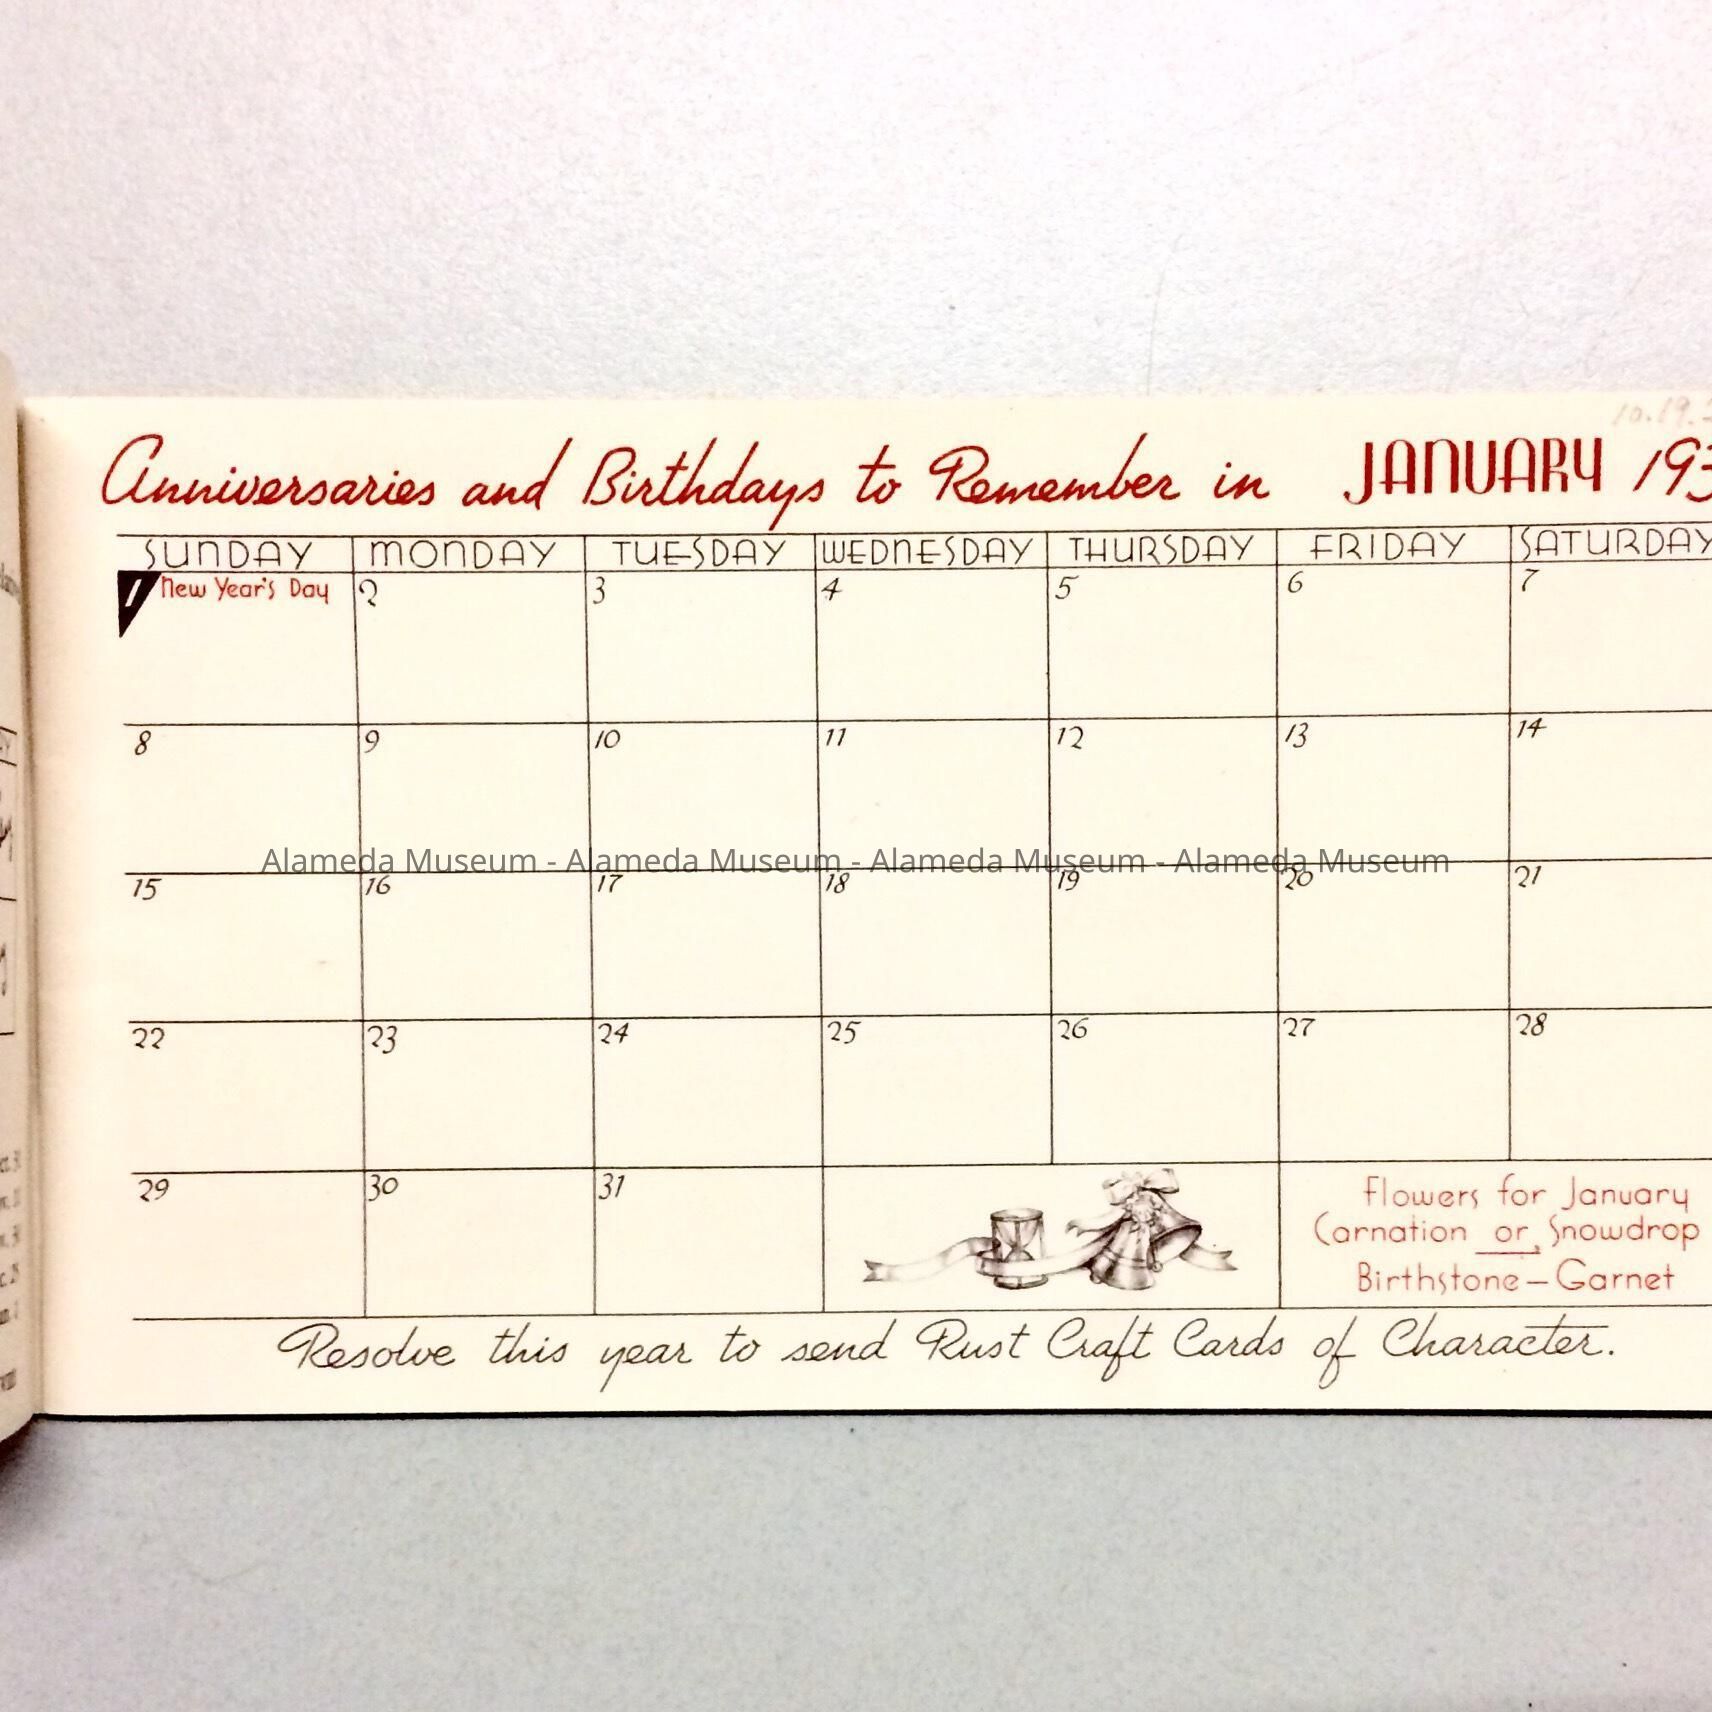 10.19.
Anniversaries and Birthdays to Remember in JANUARY 193
SUNDAY MONDAY TUESDAY WEDNESDAY THURSDAY FRIDAY SATURDAY
1 New Year's Day 2 3 4 5 6 7
8 9 10 11 12 13 14
Alameda Museum - Alameda Museum - Alameda Museum - Alameda Museum
15 16 17 18 19 20 21
22 23 24 25 26 27 28
29 30 31
Flowers for January
Carnation or Snowdrop
Birthstone—Garnet
Resolve this year to send Rust Craft Cards of Character.